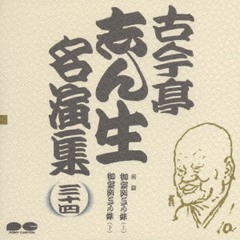 古今亭
志ん生
名演集
三十四
御家安とその妹(上)
御家安とその妹(下)
PONY CANYON